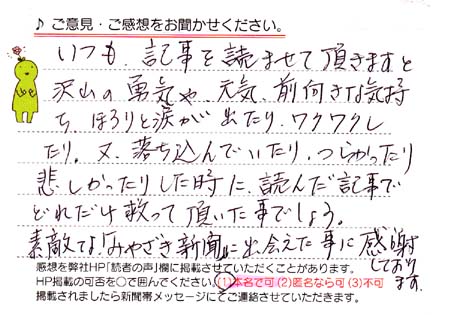 ♪ ご意見・ご感想をお聞かせください。
いつも、記事を読ませて頂きますと
沢山の勇気や、元気、前向きな気持
ち、ほろりと涙が出たり、ワクワクし
たり。又、落ち込んでいたり、つらかったり
悲しかったりした時に、読んだ記事で
どれだけ救って頂いた事でしょう。
素敵な「みやざき新聞」に出会えた事に感謝
しております。
感想を弊社HP「読者の声」欄に掲載させていただくことがあります。
HP掲載の可否を○で囲んでください。(1)本名で可 (2)匿名なら可 (3)不可
掲載されましたら新聞帯メッセージにてご連絡させていただきます。